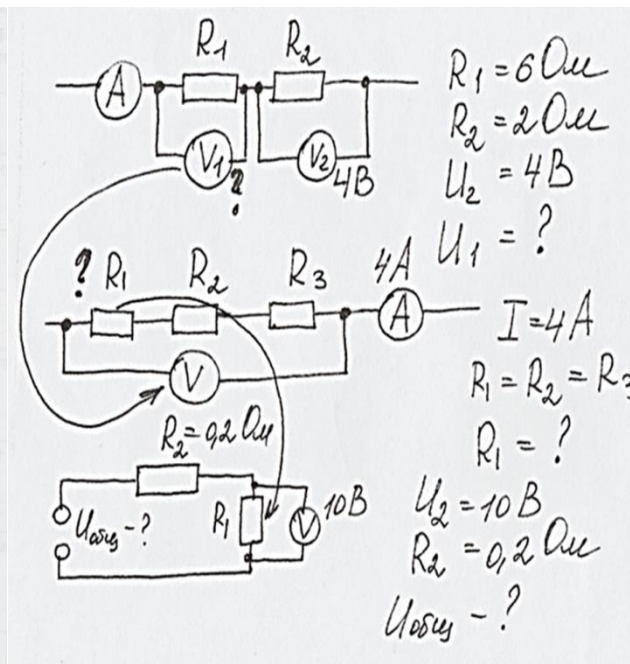 R₁ R₂
A
V₁ ? V₂ 4В
R₁ = 6 Ом
R₂ = 2 Ом
U₂ = 4 В
U₁ = ?
? R₁ R₂ R₃ 4А
A
V
I = 4 А
R₁ = R₂ = R₃
R₁ = ?
R₂ = 0,2 Ом
Uобщ - ? R₁ V 10В
U₂ = 10 В
R₂ = 0,2 Ом
Uобщ - ?